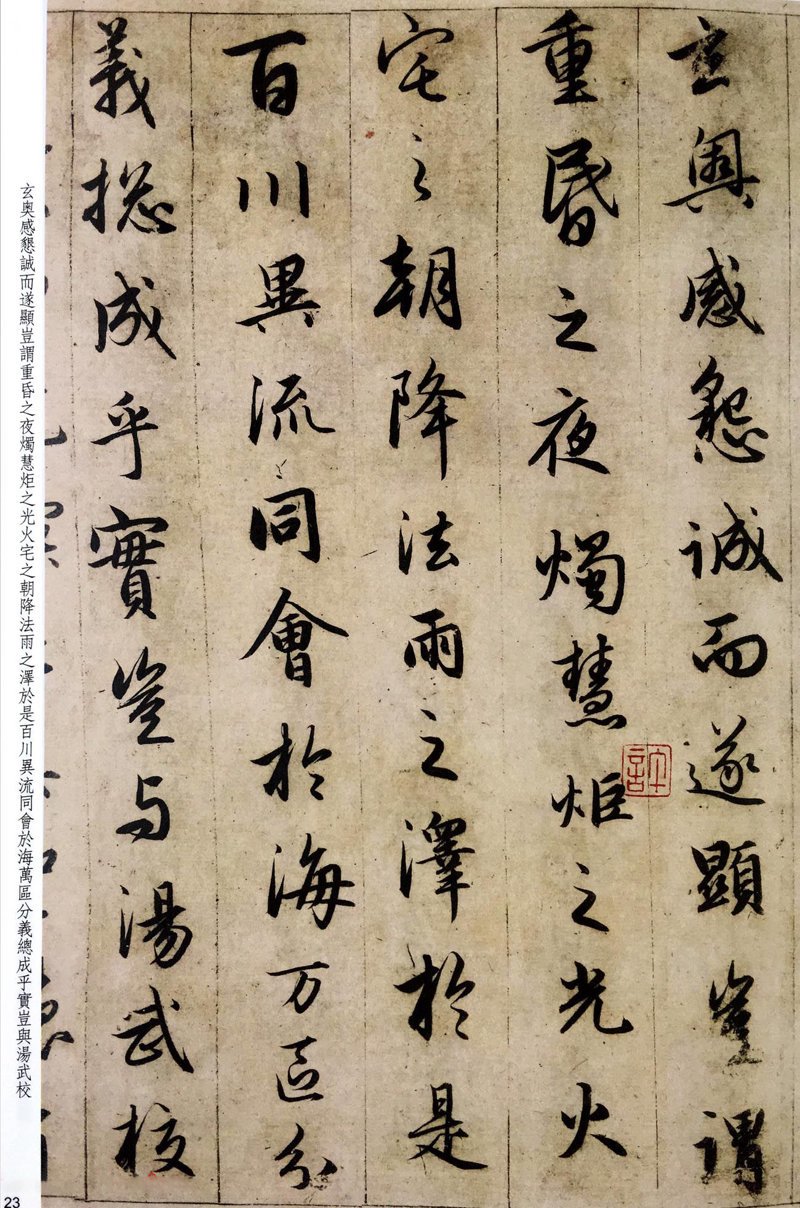 玄奥感懇誠而遂顯豈謂
重昏之夜燭慧炬之光火
宅之朝降法雨之澤於是
百川異流同會於海万區分
義揔成乎實豈与湯武校
玄奥感懇誠而遂顯豈謂重昏之夜燭慧炬之光火宅之朝降法雨之澤於是百川異流同會於海萬區分義總成乎實豈與湯武校
23